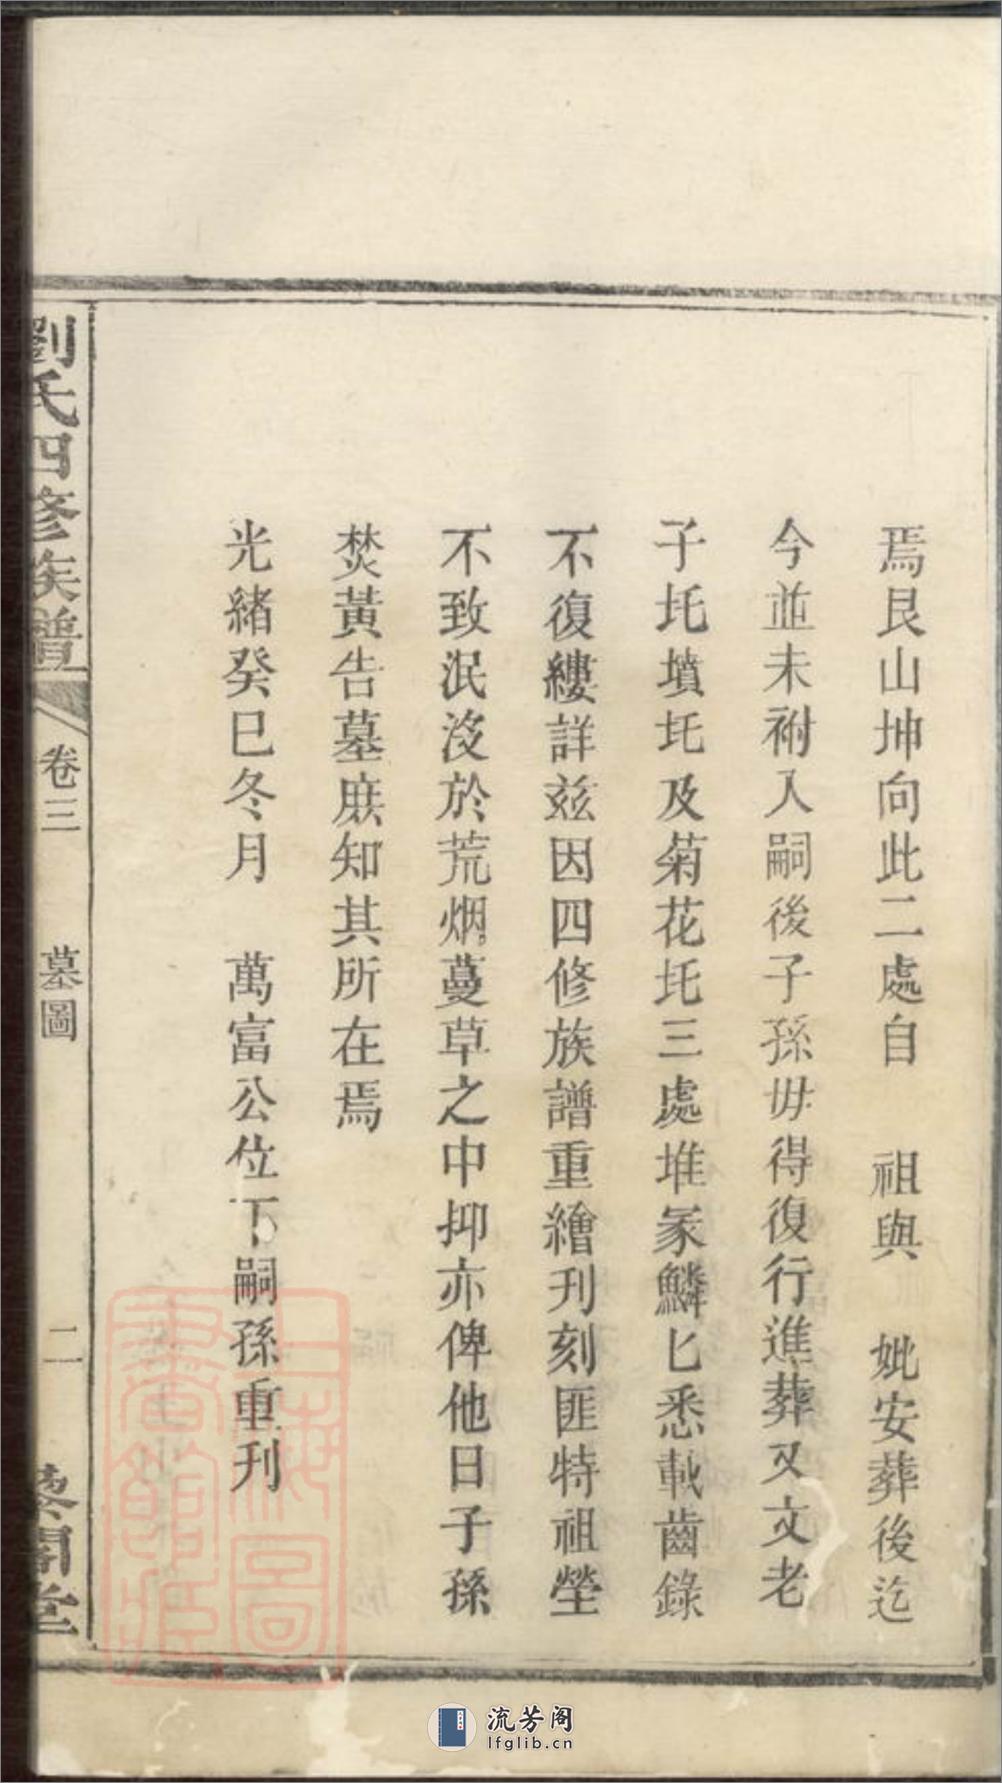 焉艮山坤向此二處自　祖與　妣安葬後迄
今並未祔入嗣後子孫毋得復行進葬又文老
子圫墳圫及菊花圫三處堆冢鱗匕悉載齒錄
不復縷詳茲因四修族譜重繪刊刻匪特祖塋
不致泯沒於荒烟蔓草之中抑亦俾他日子孫
焚黃告墓庶知其所在焉
光緒癸巳冬月　萬富公位下嗣孫重刊
劉氏四修族譜
卷三
墓圖
二
藜閣堂
上海圖書館藏
流芳阁
lfglib.cn